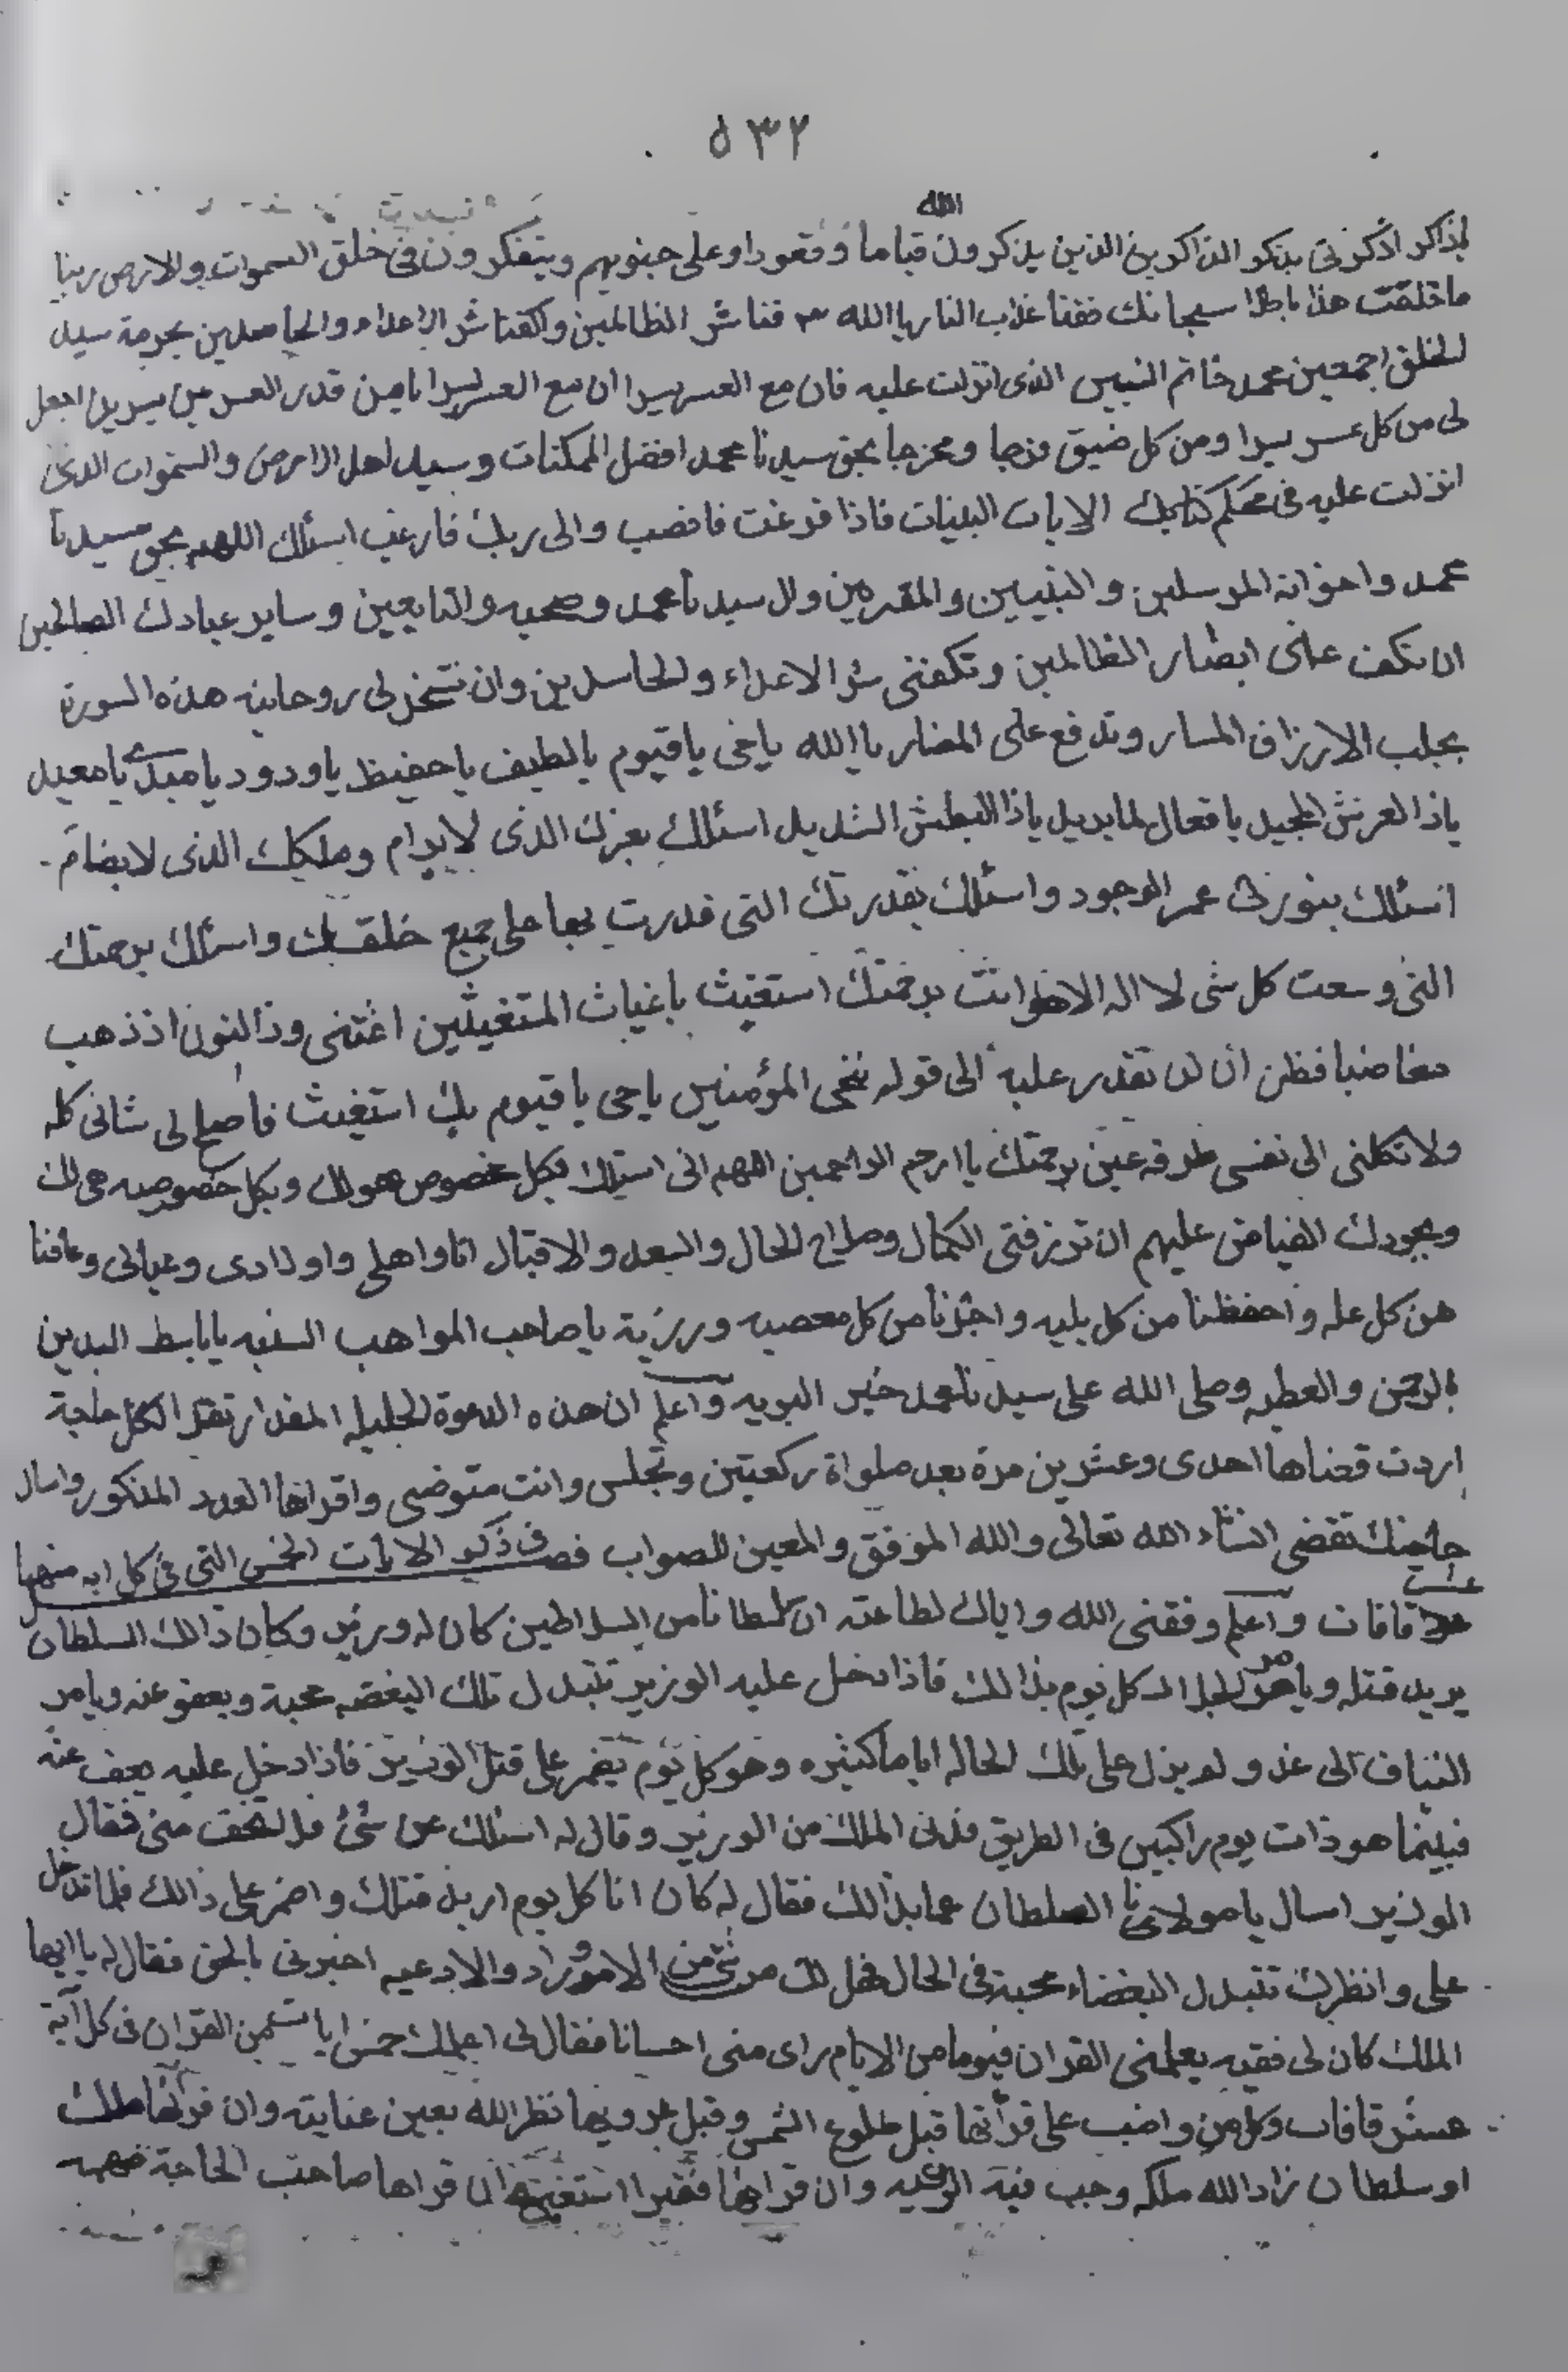 ٥٣٢
الله
لذاكر اذكرونى بذكر الذاكرين الذين يذكرون قياما وقعودا وعلى جنوبهم ويتفكرون فى خلق السموات والارض ربنا
ما خلقت هذا باطلا سبحانك فقنا عذاب النار يا الله ٣ قنا شر الظالمين واكفنا شر الاعداء والحاسدين بحرمة سيد
الخلق اجمعين محمد خاتم النبيين الذى انزلت عليه فان مع العسر يسرا ان مع العسر يسرا يا من قدر العسر يسر اجعل
لى من كل عسر يسرا ومن كل ضيق فرجا ومخرجا بحق سيدنا محمد افضل الممكنات وسيد اهل الارض والسموات الذى
انزلت عليه فى محكم كتابك الايات البينات فاذا فرغت فانصب والى ربك فارغب اسئلك اللهم بحق سيدنا
محمد واخوانه المرسلين والنبيين والمقربين وال سيدنا محمد وصحبه والتابعين وساير عبادك الصالحين
ان تكف عنى ابصار الظالمين وتكفنى شر الاعداء والحاسدين وان تسخر لى روحانيه هذه السورة
بجلب الارزاق المسار وتدفع على المضار يا الله ياحى ياقيوم يالطيف ياحفيظ ياودود يامبدئ يامعيد
ياذا العرش المجيد يافعال لما يريد ياذا البطش الشديد اسئلك بعزك الذى لايرام وملكك الذى لايضام
اسئلك بنورك عمر الوجود واسئلك بقدرتك التى قدرت بها على جميع خلقك واسئلك برحمتك
التى وسعت كل شى لا اله الا انت برحمتك استغيث ياغياث المتغيثين اغثنى وذالنون اذ ذهب
مغاضبا فظن ان لن نقدر عليه الى قوله ننجى المؤمنين ياحى ياقيوم بك استغيث فاصلح لى شانى كله
ولاتكلنى الى نفسى طرفه عين برحمتك ياارحم الراحمين اللهم انى اسئلك بكل خصوص هولك وبكل خصوصيه هى لك
وبجودك الفياض عليهم ان ترزقنى الكمال وصلاح الحال والسعد والاقبال انا واهلى واولادى وعيالى وعافنا
من كل عله واحفظنا من كل بليه واجرنا من كل معصيه ورزية ياصاحب المواهب السنيه ياباسط اليدين
بالرحمن والعطيه وصلى الله على سيدنا محمد خير البريه واعلم ان هذه الدعوة الجليله المقدار تقرا لكل حاجة
اردت قضاها احدى وعشرين مرة بعد صلواة ركعتين وتجلس وانت متوضى واقراها العدد المذكور واسال
حاجتك تقضى انشاء الله تعالى والله الموفق والمعين للصواب فصل فى ذكر الايات الخمس التى فى كل ايه منها
عشر قافات واعلم وفقنى الله واياك لطاعته ان سلطانا من السلاطين كان له وزير وكان ذالك السلطان
يريد قتله ويامر الجلاد كل يوم بذالك فاذا دخل عليه الوزير تتبدل تلك البغضه محبة ويعفو عنه ويامر
السياف الى غد ولم يزل على تلك الحاله اياما كثيره وهو كل يوم يضمر على قتل الوزير فاذا دخل عليه يعف عنه
فبينما هو ذات يوم راكبين فى الطريق فدنى الملك من الوزير وقال له اسئلك عن شئ فلا تخف منى فقال
الوزير اسال يامولانا السلطان عما بدالك فقال له كان انا كل يوم اريد قتلك واضمر على ذالك فلما تدخل
على وانظرك تتبدل البغضاء محبة فى الحال فهل لك من شئ من الاوراد والادعيه اخبرنى بالحق فقال له ياايها
الملك كان لى فقيه يعلمنى القران فيوما من الايام راى منى احسانا فقال لى اعلمك خمس ايات من القران فى كل آية
عشر قافات وكل من واضب على قرأتها قبل طلوع الشمس وقبل غروبها نظر الله بعين عنايته وان قرأها ملك
اوسلطان زاد الله ملكه وحبب فيه الرعيه وان قراها فقيرا استغنى وان قراها صاحب الحاجة